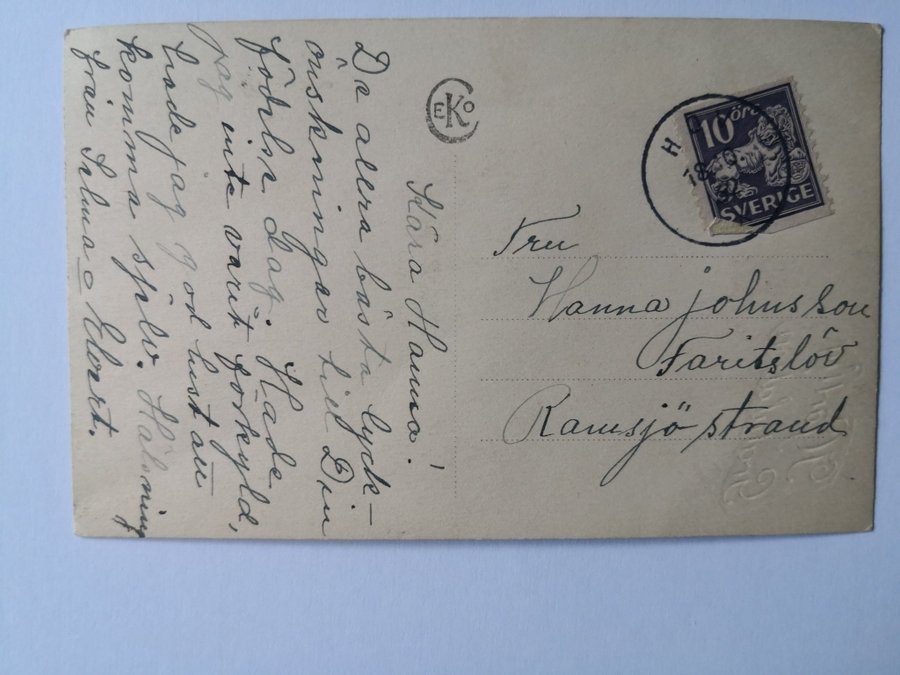 Kära Hanna!
De allra bästa lyck-
önskningar till Din
födelse Dag. Hade
jag inte varit förkyld,
hade jag god lust att
komma sjelv. Hälsning
från Selma o Evert.
EKO
10 öre
SVERIGE
18
Fru
Hanna Johnsson
Faritslöv
Ramsjöstrand